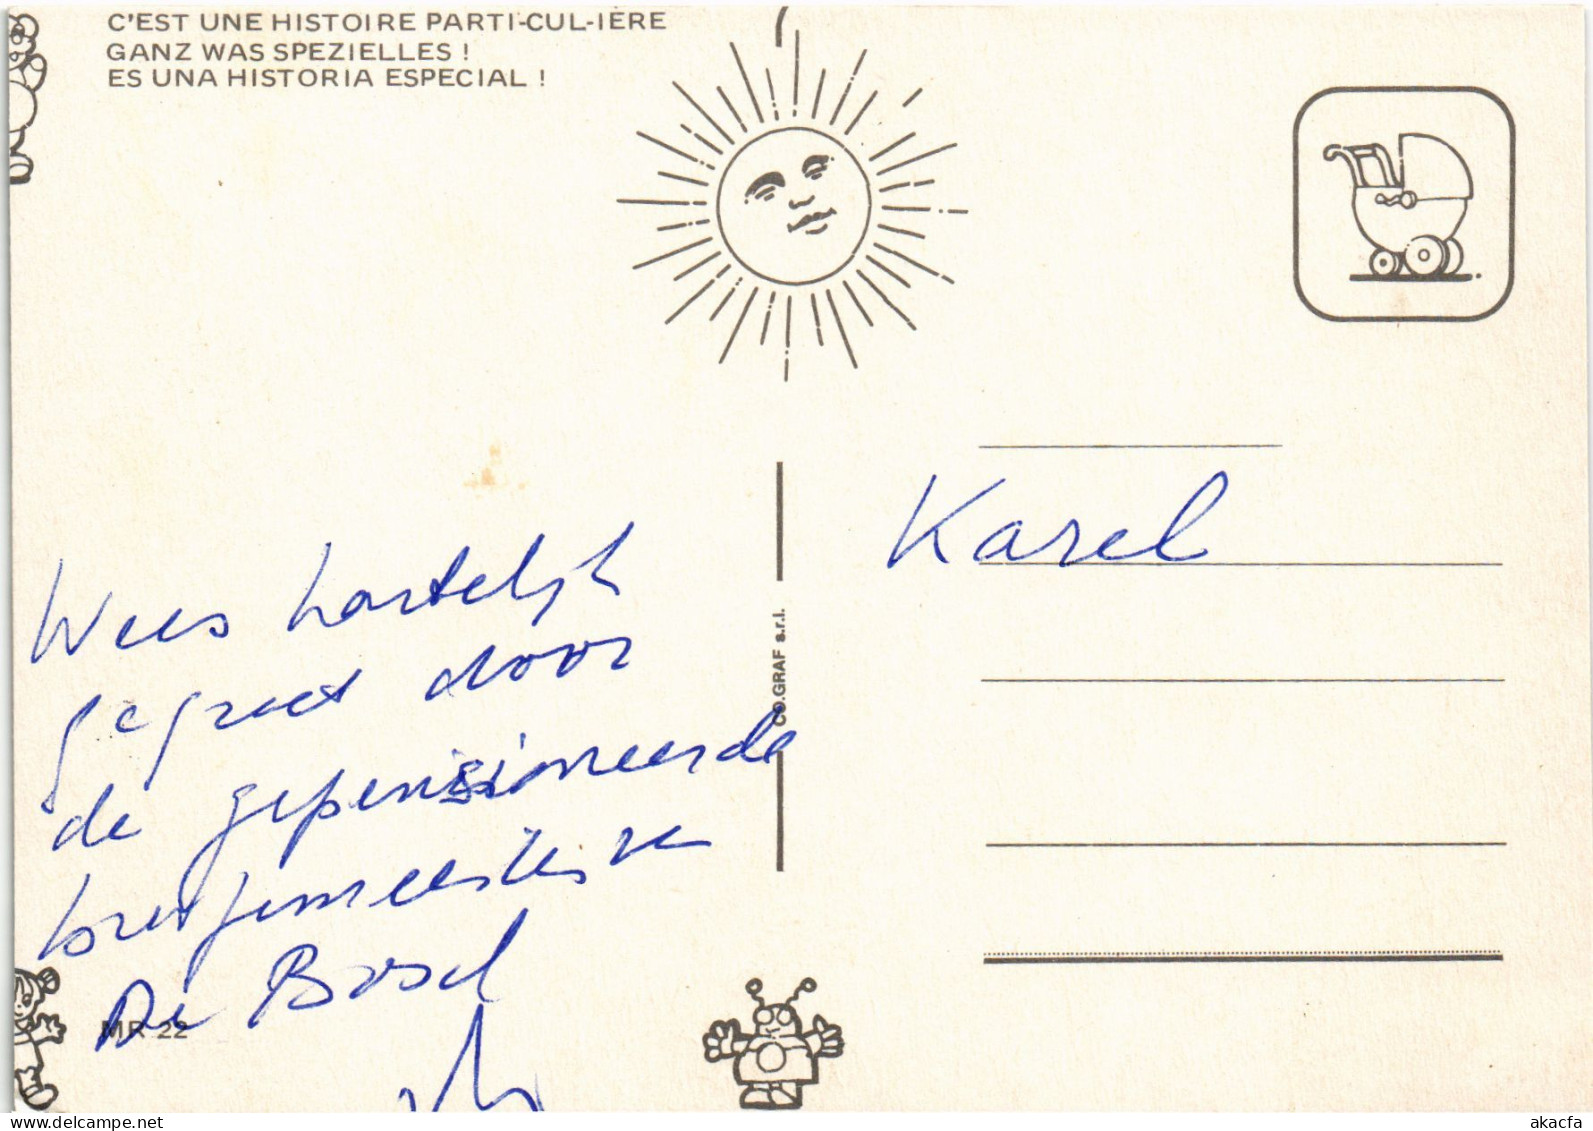 C'EST UNE HISTOIRE PARTI-CUL-IÈRE
GANZ WAS SPEZIELLES !
ES UNA HISTORIA ESPECIAL !
Karel
Wees hartelijk
gegroet door
de gepensioneerde
burgemeester van
De Bosch
CO.GRAF s.r.l.
MR 22
www.delcampe.net
akacfa